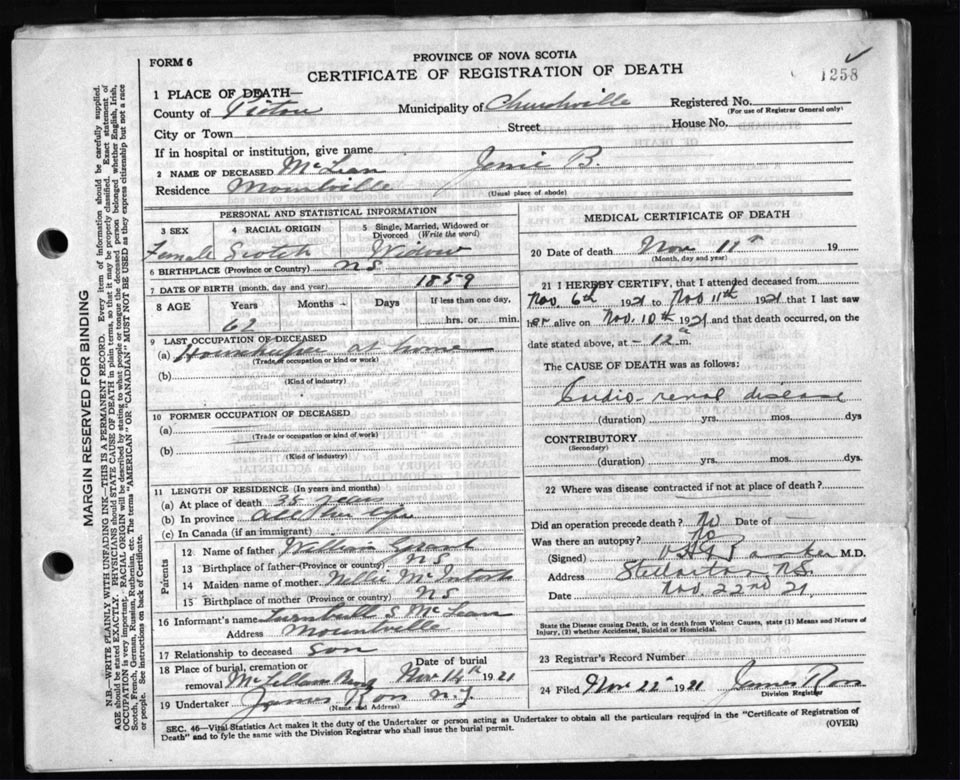 FORM 6
PROVINCE OF NOVA SCOTIA
CERTIFICATE OF REGISTRATION OF DEATH
1258
1 PLACE OF DEATH—
County of Pictou Municipality of Churchville Registered No.
(For use of Registrar General only)
City or Town Street House No.
If in hospital or institution, give name
2 NAME OF DECEASED McLean Jennie B.
Residence Mountville
(Usual place of abode)
PERSONAL AND STATISTICAL INFORMATION
3 SEX 4 RACIAL ORIGIN 5 Single, Married, Widowed or Divorced (Write the word)
Female Scotch Widow
6 BIRTHPLACE (Province or Country) N S
7 DATE OF BIRTH (month, day and year) 1859
8 AGE Years Months Days If less than one day,
62 hrs. or min.
9 LAST OCCUPATION OF DECEASED
(a) Housekeeper at home
(Trade or occupation or kind of work)
(b)
(Kind of industry)
10 FORMER OCCUPATION OF DECEASED
(a)
(Trade or occupation or kind of work)
(b)
(Kind of industry)
11 LENGTH OF RESIDENCE (In years and months)
(a) At place of death 35 years
(b) In province all her life
(c) In Canada (if an immigrant)
Parents
12 Name of father William Grant
13 Birthplace of father (Province or country) NS
14 Maiden name of mother Nellie McIntosh
15 Birthplace of mother (Province or country) NS
16 Informant's name S McLean
Address Mountville
17 Relationship to deceased son
18 Place of burial, cremation or removal McLellans Date of burial Nov 14th 1921
19 Undertaker James Ross N. G.
(Name and Address)
MEDICAL CERTIFICATE OF DEATH
20 Date of death Nov 11th 19
(Month, day and year)
21 I HEREBY CERTIFY, that I attended deceased from
Nov. 6th 1921 to Nov 11th 1921 that I last saw
her alive on Nov. 10th 1921 and that death occurred, on the
date stated above, at — 12 a m.
The CAUSE OF DEATH was as follows:
Cardio-renal disease
(duration) yrs. mos. dys
CONTRIBUTORY
(Secondary)
(duration) yrs. mos. dys
22 Where was disease contracted if not at place of death?
Did an operation precede death? No Date of —
Was there an autopsy? No
(Signed) M.D.
Address Stellarton N.S.
Date Nov. 22nd 21
State the Disease causing Death, or in death from Violent Causes, state (1) Means and Nature of Injury, (2) whether Accidental, Suicidal or Homicidal.
23 Registrar's Record Number
24 Filed Nov 22nd 1921 James Ross
Division Registrar
SEC. 46—Vital Statistics Act makes it the duty of the Undertaker or person acting as Undertaker to obtain all the particulars required in the "Certificate of Registration of Death" and to fyle the same with the Division Registrar who shall issue the burial permit.
(OVER)
MARGIN RESERVED FOR BINDING
N.B.—WRITE PLAINLY WITH UNFADING INK—THIS IS A PERMANENT RECORD. Every item of information should be carefully supplied.
AGE should be stated EXACTLY. PHYSICIANS should STATE CAUSE OF DEATH in plain terms, so that it may be properly classified. Exact statement of
OCCUPATION is very important. RACIAL ORIGIN will be described by stating to what people or tongue the deceased person belonged whether English, Irish,
Scotch, French, German, Russian, Ruthenian, etc. The terms "AMERICAN" OR "CANADIAN" MUST NOT BE USED as they express citizenship but not a race
or people. See instructions on back of Certificate.